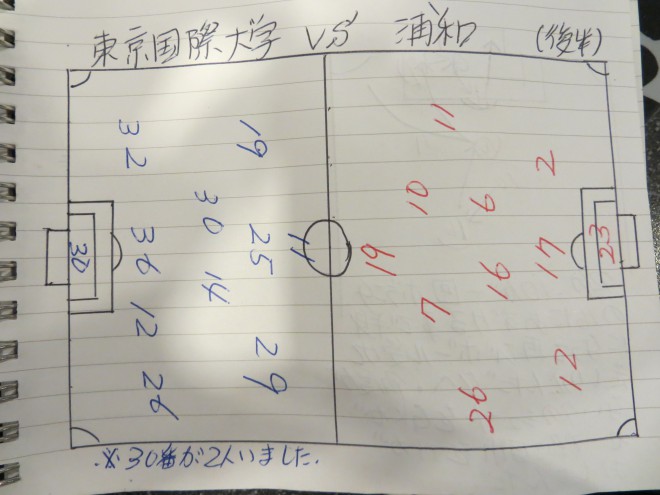 東京国際大学 VS 浦和 (後半)
32
19
30
36
25
11
30
14
12
29
26
11
2
10
6
19
17
23
16
7
12
26
※30番が2人いました.